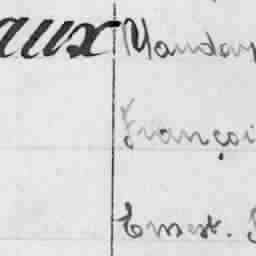 aux Mauday
Françoi
Ernest.